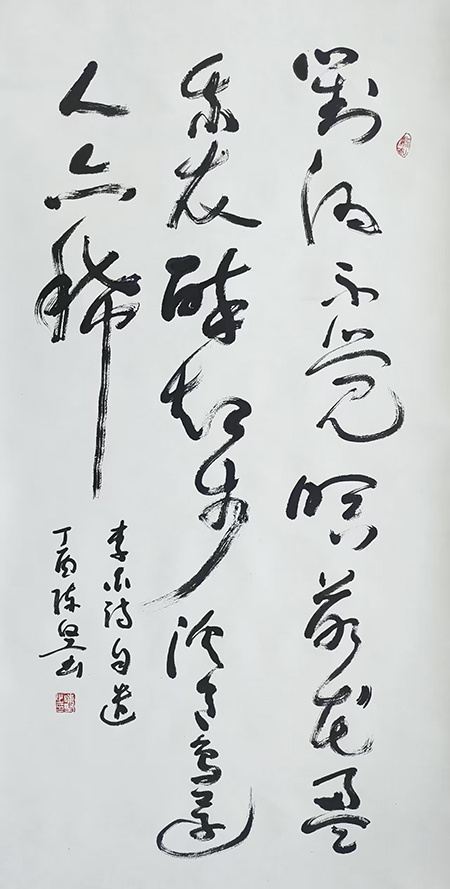 對酒不覺暝落花盈
我衣醉起步溪月鳥還
人亦稀
李白詩自遣
丁酉陳書